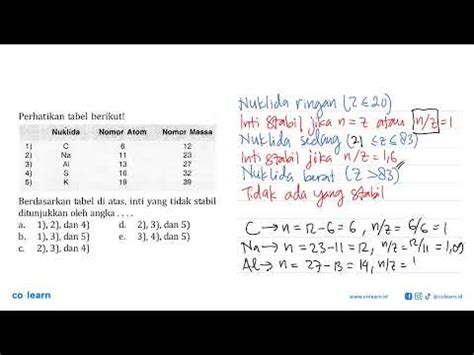 Perhatikan tabel berikut!
Nuklida Nomor Atom Nomor Massa
1) C 6 12
2) Na 11 23
3) Al 13 27
4) S 16 32
5) K 19 39
Berdasarkan tabel di atas, inti yang tidak stabil
ditunjukkan oleh angka . . . .
a. 1), 2), dan 4) d. 2), 3), dan 5)
b. 1), 3), dan 5) e. 3), 4), dan 5)
c. 2), 3), dan 4)
Nuklida ringan (Z ≤ 20)
Inti stabil jika n = z atau n/z = 1
Nuklida sedang (21 ≤ z ≤ 83)
Inti stabil jika n/z = 1,6
Nuklida berat (Z > 83)
Tidak ada yang stabil
C → n = 12 - 6 = 6 , n/z = 6/6 = 1
Na → n = 23 - 11 = 12, n/z = 12/11 = 1,09
Al → n = 27 - 13 = 14, n/z = 1
co learn
www.colearn.id
@colearn.id